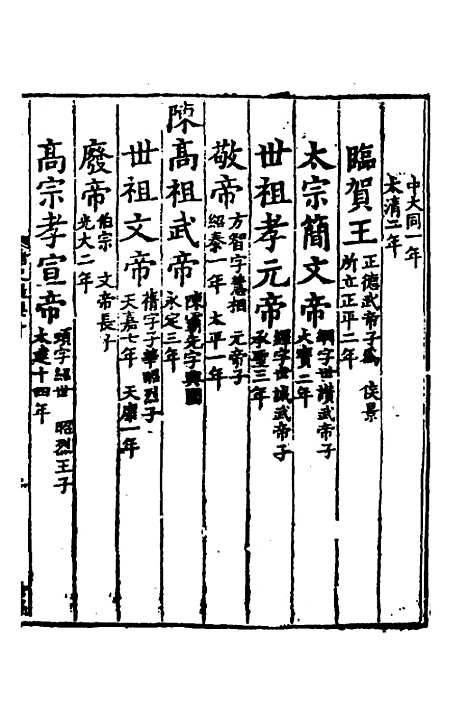 中大同一年
太清三年
臨賀王 正德武帝子為 侯景
所立正平二年
太宗簡文帝 綱字世讃武帝子
大寳二年
世祖孝元帝 繹字世誠武帝子
承聖三年
敬帝 方智字慧相 元帝子
紹泰一年 太平一年
陳高祖武帝 陳霸先字興國
永定三年
世祖文帝 蒨字子華昭烈子
天嘉七年 天康一年
廢帝 伯宗 文帝長子
光大二年
高宗孝宣帝 頊字紹世 昭烈王子
太建十四年